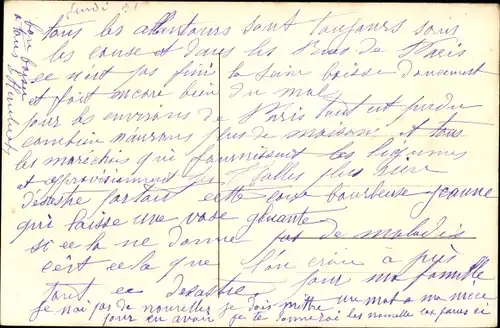 Lundi 31
bon baiser
a tous
tous les alentours sont toujours sous
les eaux et dans les Rues de Paris
ce n'est pas fini la Seine baisse doucement
et fait encore bien du mal
pour les environs de Paris tout est perdu
combien n'aurons plus de maisons et tous
les maraichers qui fournissent les légumes
et approvisionnent les Halles plus rien
désastre partout cette eaux bourbeuse jeaune
qui laisse une vase gluante
si cela ne donne pas de maladis
c'èt cela que l'on crain à près
tout ce desastre. pour ma famille
je n'ai pas de nouvelles je dois mettre un mot a ma nièce
pour en avoir je te donnerai les nouvelle